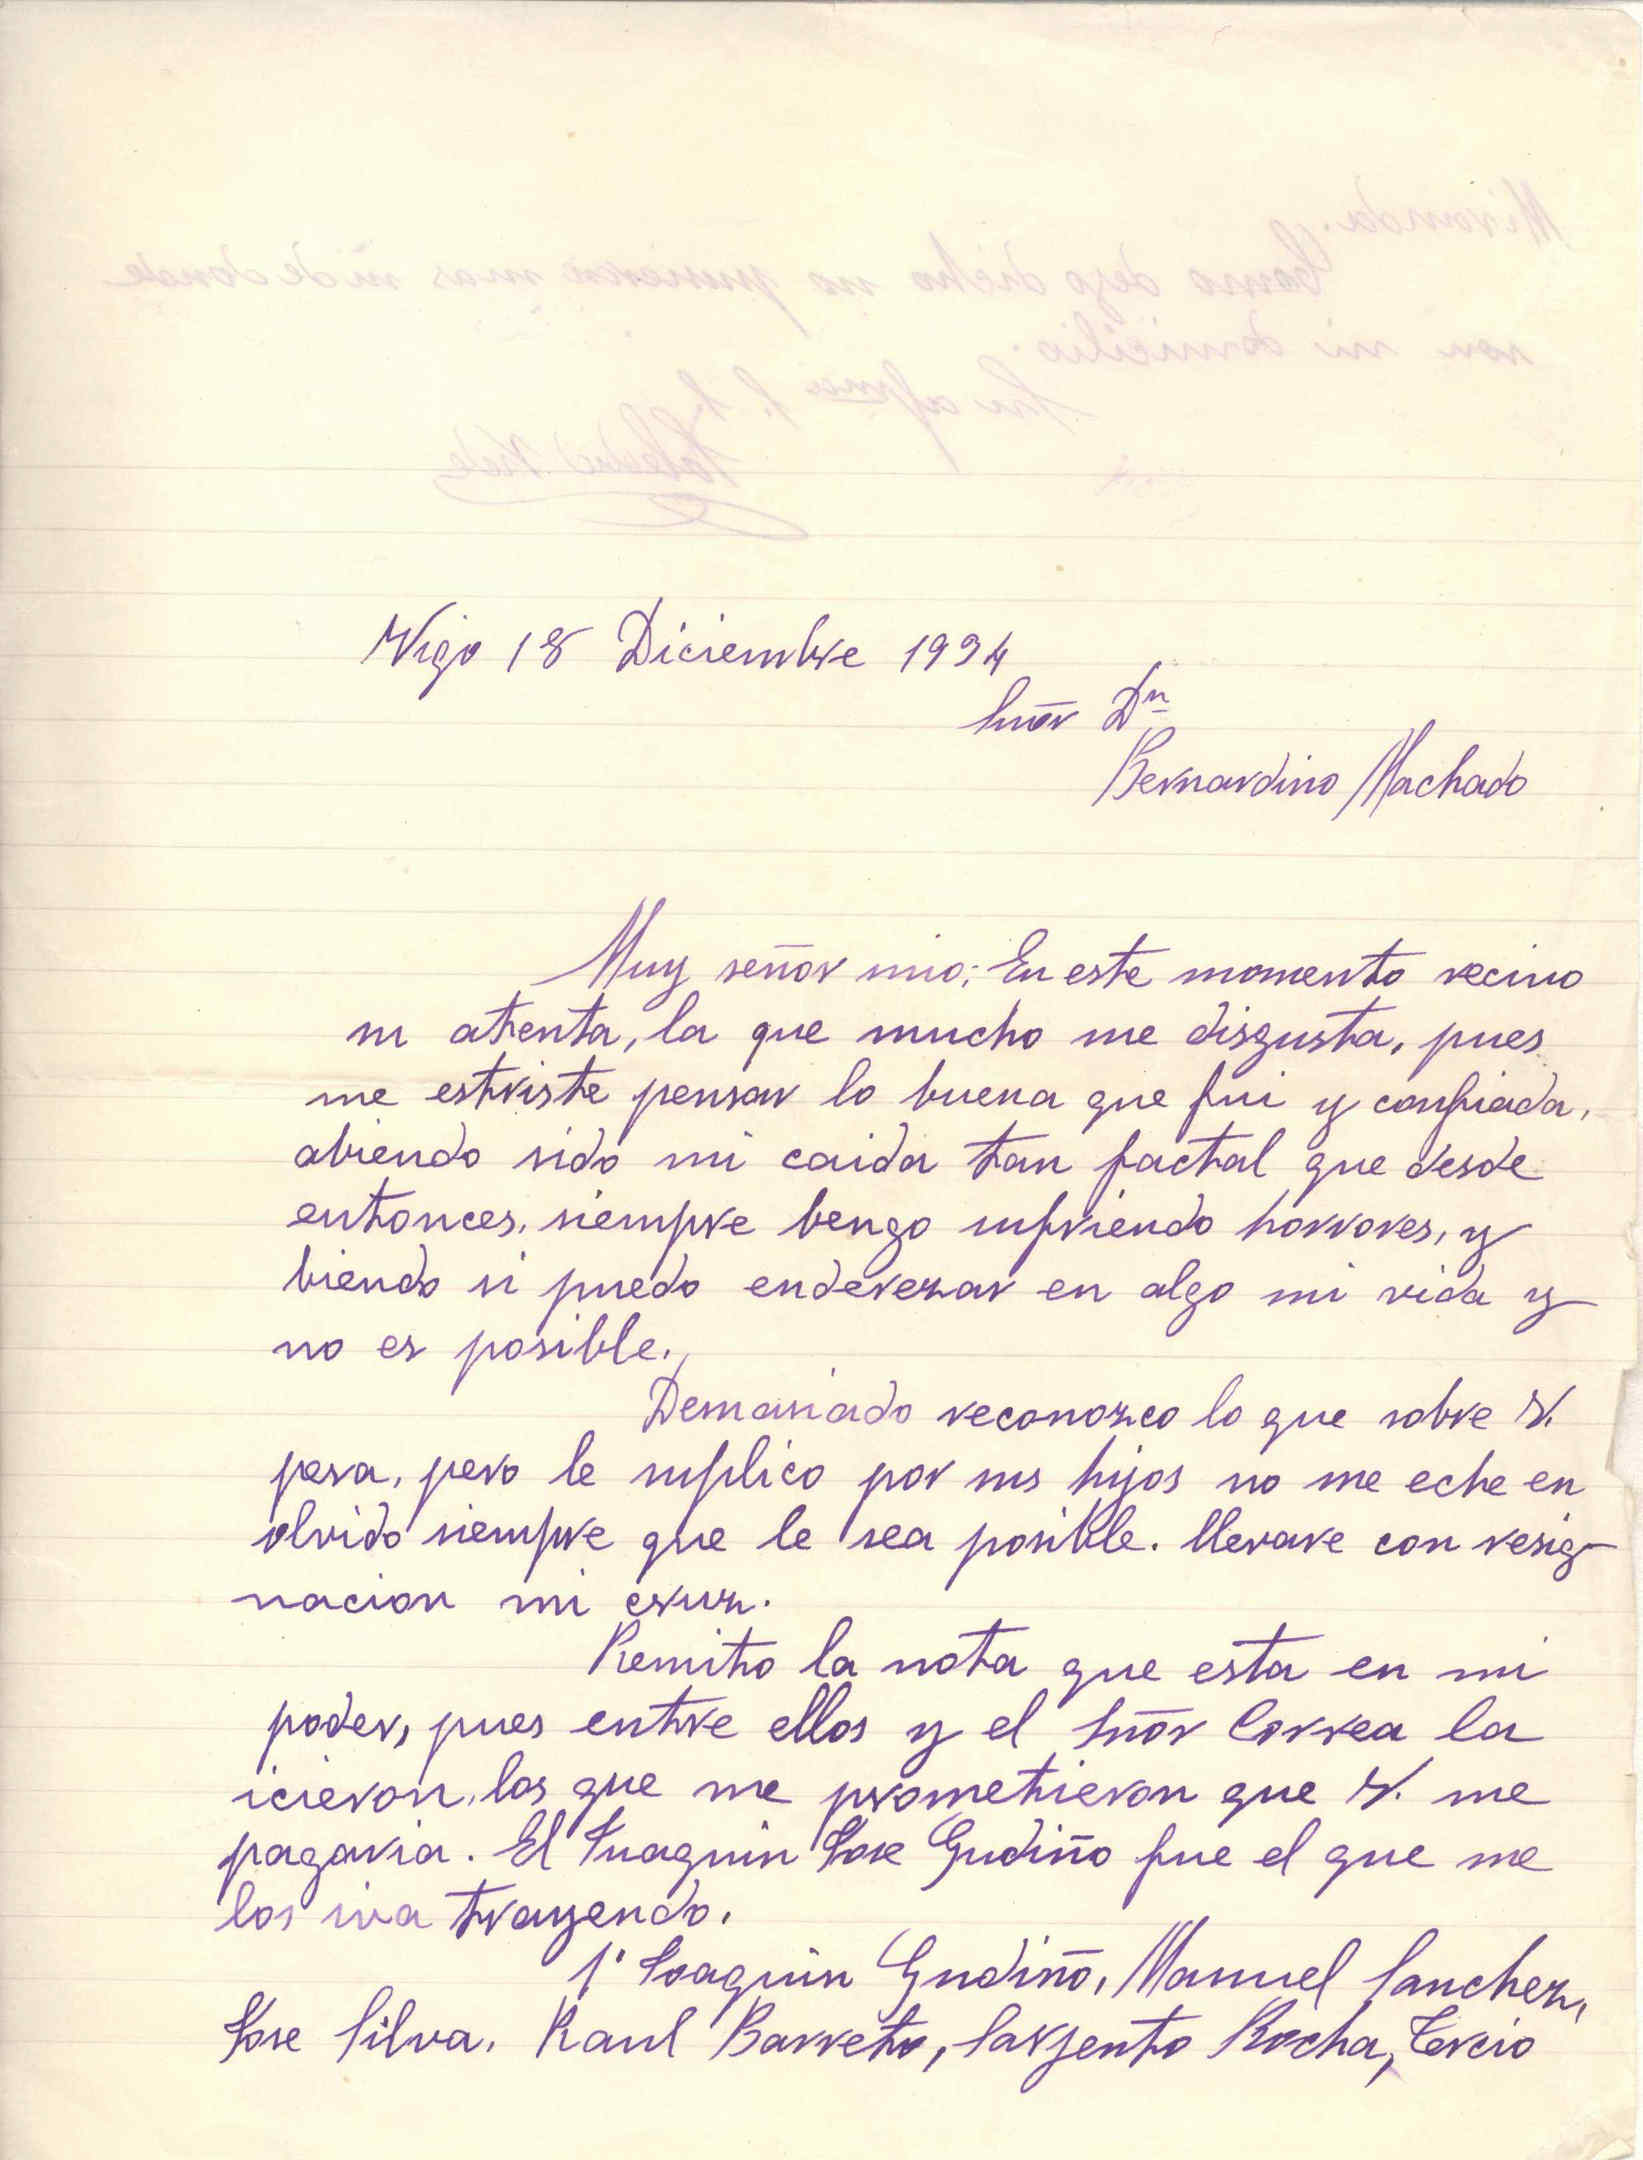 Vigo 18 Diciembre 1934
Snõr Dn
Bernardino Machado
Muy señor mio: En este momento recivo
su atenta, la que mucho me disgusta, pues
me estriste pensar lo buena que fui y confiada,
abiendo sido mi caida tan factal que desde
entonces, siempre bengo sufriendo horrores, y
biendo si puedo enderezar en algo mi vida y
no es posible.
Demasiado reconozco lo que sobre V.
pesa, pero le suplico por sus hijos no me eche en
olvido siempre que le sea posible. llevare con resig-
nacion mi cruz.
Remito la nota que esta en mi
poder, pues entre ellos y el Snõr Correa la
icieron, los que me prometieron que V. me
pagaria. El Juaquin Jose Gudiño fue el que me
los iva trayendo.
1º Joaquin Gudiño, Manuel Sanchez,
Jose Silva. Raul Barreto, Sarjento Rocha, Tercio